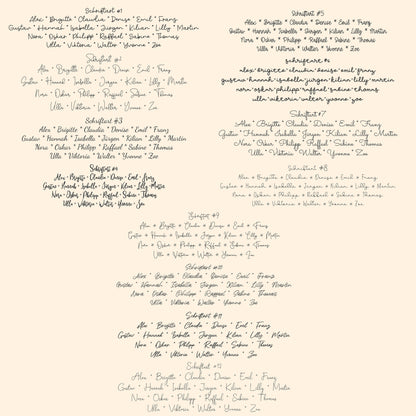 Schriftart #1
Alex * Brigitte * Claudia * Denise * Emil * Franz
Gustav * Hannah * Isabella * Jürgen * Kilian * Lilly * Martin
Nora * Oskar * Philipp * Raffael * Sabine * Thomas
Ulla * Viktoria * Walter * Yvonne * Zoe
Schriftart #2
Alex * Brigitte * Claudia * Denise * Emil * Franz
Gustav * Hannah * Isabella * Jürgen * Kilian * Lilly * Martin
Nora * Oskar * Philipp * Raffael * Sabine * Thomas
Ulla * Viktoria * Walter * Yvonne * Zoe
Schriftart #3
Alex * Brigitte * Claudia * Denise * Emil * Franz
Gustav * Hannah * Isabella * Jürgen * Kilian * Lilly * Martin
Nora * Oskar * Philipp * Raffael * Sabine * Thomas
Ulla * Viktoria * Walter * Yvonne * Zoe
Schriftart #4
Alex * Brigitte * Claudia * Denise * Emil * Franz
Gustav * Hannah * Isabella * Jürgen * Kilian * Lilly * Martin
Nora * Oskar * Philipp * Raffael * Sabine * Thomas
Ulla * Viktoria * Walter * Yvonne * Zoe
Schriftart #5
Alex * Brigitte * Claudia * Denise * Emil * Franz
Gustav * Hannah * Isabella * Jürgen * Kilian * Lilly * Martin
Nora * Oskar * Philipp * Raffael * Sabine * Thomas
Ulla * Viktoria * Walter * Yvonne * Zoe
schriftart #6
alex * brigitte * claudia * denise * emil * franz
gustav * hannah * isabella * jürgen * kilian * lilly * martin
nora * oskar * philipp * raffael * sabine * thomas
ulla * viktoria * walter * yvonne * zoe
Schriftart #7
Alex * Brigitte * Claudia * Denise * Emil * Franz
Gustav * Hannah * Isabella * Jürgen * Kilian * Lilly * Martin
Nora * Oskar * Philipp * Raffael * Sabine * Thomas
Ulla * Viktoria * Walter * Yvonne * Zoe
Schriftart #8
Alex * Brigitte * Claudia * Denise * Emil * Franz
Gustav * Hannah * Isabella * Jürgen * Kilian * Lilly * Martin
Nora * Oskar * Philipp * Raffael * Sabine * Thomas
Ulla * Viktoria * Walter * Yvonne * Zoe
Schriftart #9
Alex * Brigitte * Claudia * Denise * Emil * Franz
Gustav * Hannah * Isabella * Jürgen * Kilian * Lilly * Martin
Nora * Oskar * Philipp * Raffael * Sabine * Thomas
Ulla * Viktoria * Walter * Yvonne * Zoe
Schriftart #10
Alex * Brigitte * Claudia * Denise * Emil * Franz
Gustav * Hannah * Isabella * Jürgen * Kilian * Lilly * Martin
Nora * Oskar * Philipp * Raffael * Sabine * Thomas
Ulla * Viktoria * Walter * Yvonne * Zoe
Schriftart #11
Alex * Brigitte * Claudia * Denise * Emil * Franz
Gustav * Hannah * Isabella * Jürgen * Kilian * Lilly * Martin
Nora * Oskar * Philipp * Raffael * Sabine * Thomas
Ulla * Viktoria * Walter * Yvonne * Zoe
Schriftart #12
Alex * Brigitte * Claudia * Denise * Emil * Franz
Gustav * Hannah * Isabella * Jürgen * Kilian * Lilly * Martin
Nora * Oskar * Philipp * Raffael * Sabine * Thomas
Ulla * Viktoria * Walter * Yvonne * Zoe